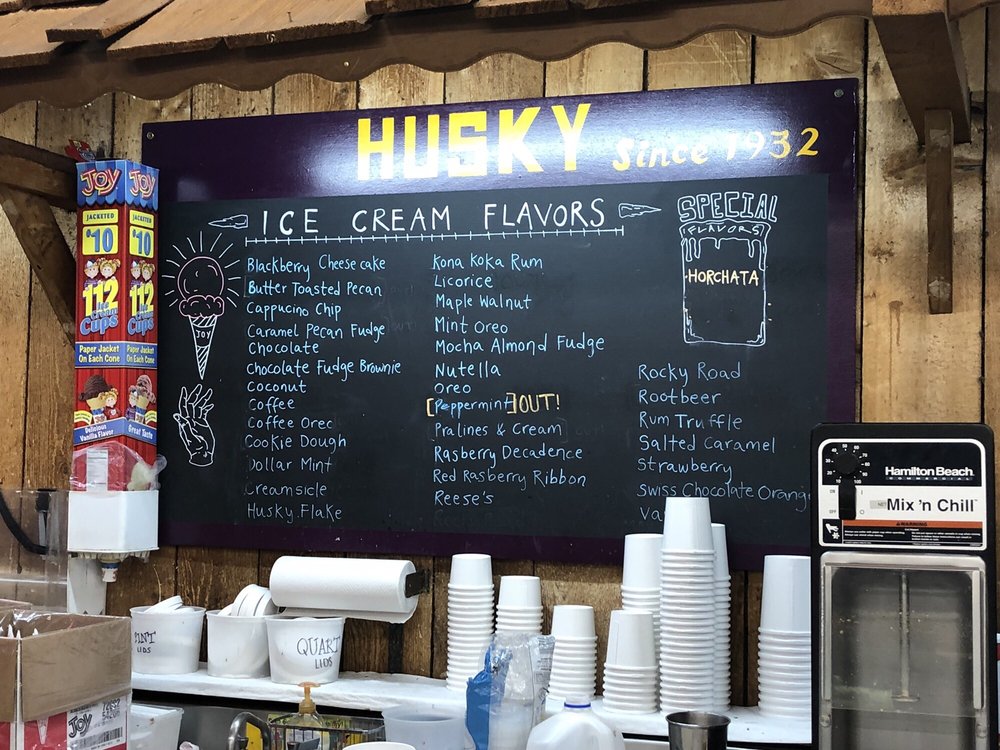 HUSKY Since 1932
ICE CREAM FLAVORS
Blackberry Cheesecake
Butter Toasted Pecan
Cappucino Chip
Caramel Pecan Fudge
Chocolate
Chocolate Fudge Brownie
Coconut
Coffee
Coffee Oreo
Cookie Dough
Dollar Mint
Creamsicle
Husky Flake
Kona Koka Rum
Licorice
Maple Walnut
Mint Oreo
Mocha Almond Fudge
Nutella
Oreo
[Peppermint] OUT!
Pralines & Cream
Rasberry Decadence
Red Rasberry Ribbon
Reese's
SPECIAL
FLAVORS
HORCHATA
Rocky Road
Rootbeer
Rum Truffle
Salted Caramel
Strawberry
Swiss Chocolate Orang
Va
JOY
JOY JOY
JACKETED JACKETED
$10 $10
112 112
Cups Cups
Paper Jacket Paper Jacket
On Each Cone On Each Cone
Delicious Great Taste
Vanilla Flavor
PINT
LIDS
QUART
LIDS
JOY
Hamilton Beach
COMMERCIAL
Mix 'n Chill™
WARNING
ON
OFF